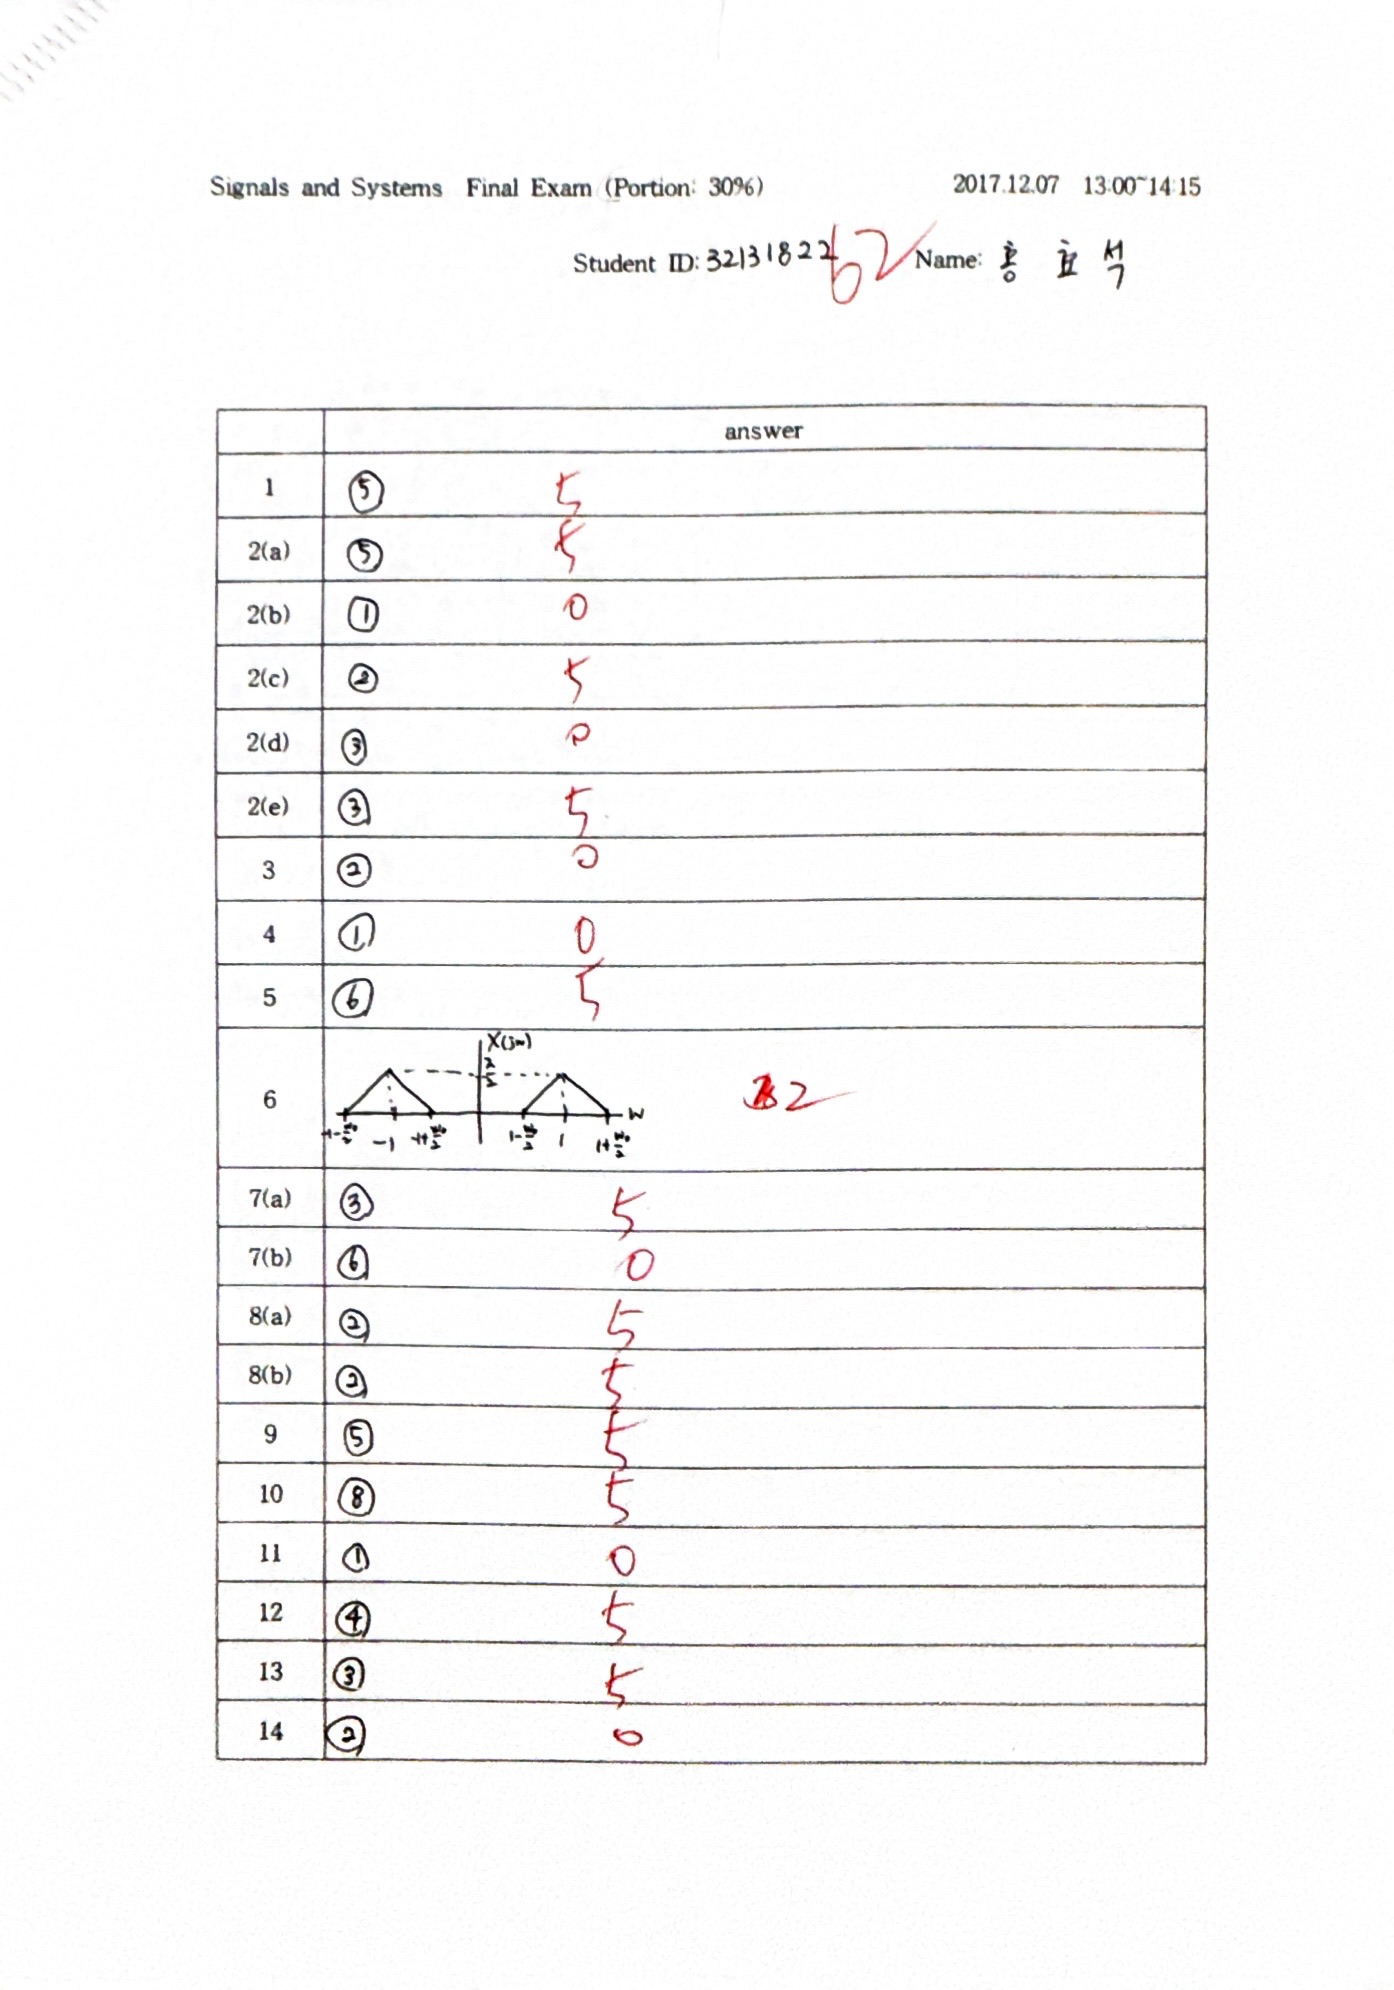 Signals and Systems Final Exam (Portion: 30%) 2017.12.07 13:00~14:15
Student ID: 32131822 62 Name: 홍 효 석
answer
1 ⑤ 5
2(a) ⑤ 5
2(b) ① 0
2(c) ② 5
2(d) ③ 0
2(e) ③ 5
3 ② 0
4 ① 0
5 ⑥ 5
X(jw)
6 2
w
-1 1
7(a) ③ 5
7(b) ⑥ 0
8(a) ② 5
8(b) ② 5
9 ⑤ 5
10 ⑧ 5
11 ① 0
12 ④ 5
13 ③ 5
14 ② 0